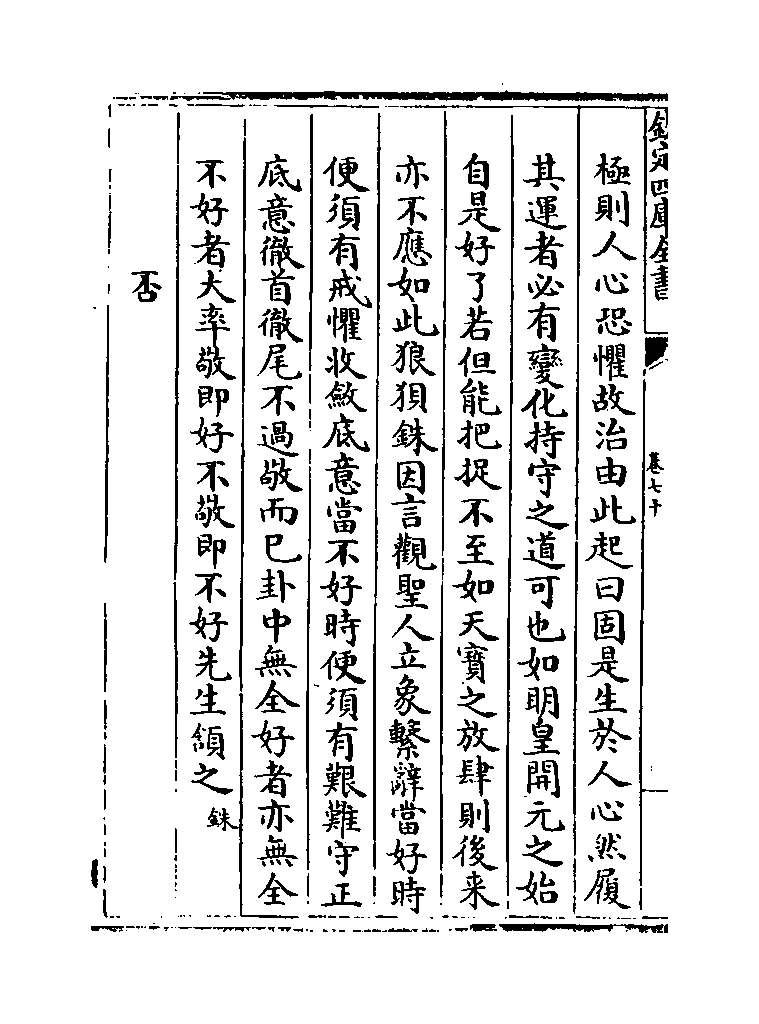 欽定四庫全書
卷七十
極則人心恐懼故治由此起曰固是生於人心然履
其運者必有變化持守之道可也如明皇開元之始
自是好了若但能把捉不至如天寶之放肆則後来
亦不應如此狼狽銖因言觀聖人立象繫辭當好時
便須有戒懼收斂底意當不好時便須有艱難守正
底意徹首徹尾不過敬而已卦中無全好者亦無全
不好者大率敬即好不敬即不好先生頷之銖
否